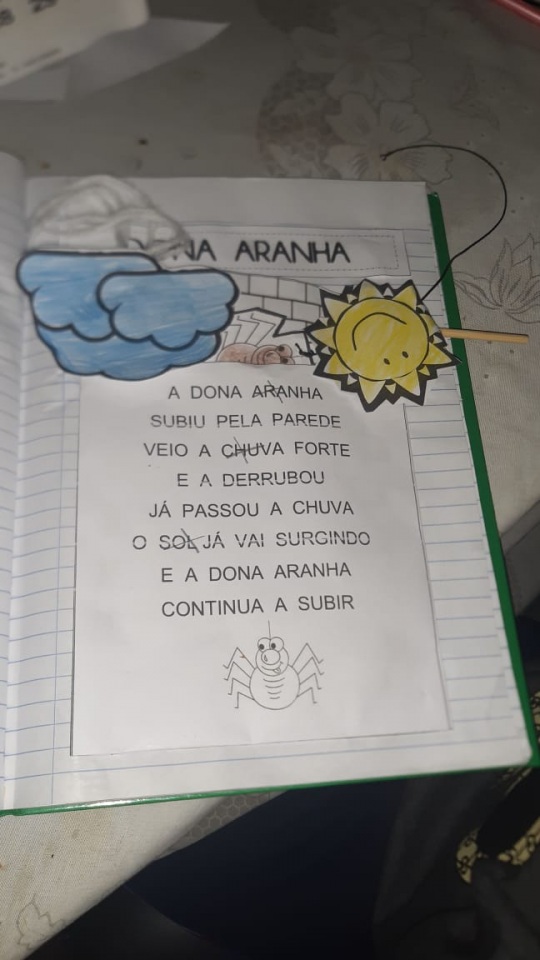 NA ARANHA
A DONA ARANHA
SUBIU PELA PAREDE
VEIO A CHUVA FORTE
E A DERRUBOU
JÁ PASSOU A CHUVA
O SOL JÁ VAI SURGINDO
E A DONA ARANHA
CONTINUA A SUBIR